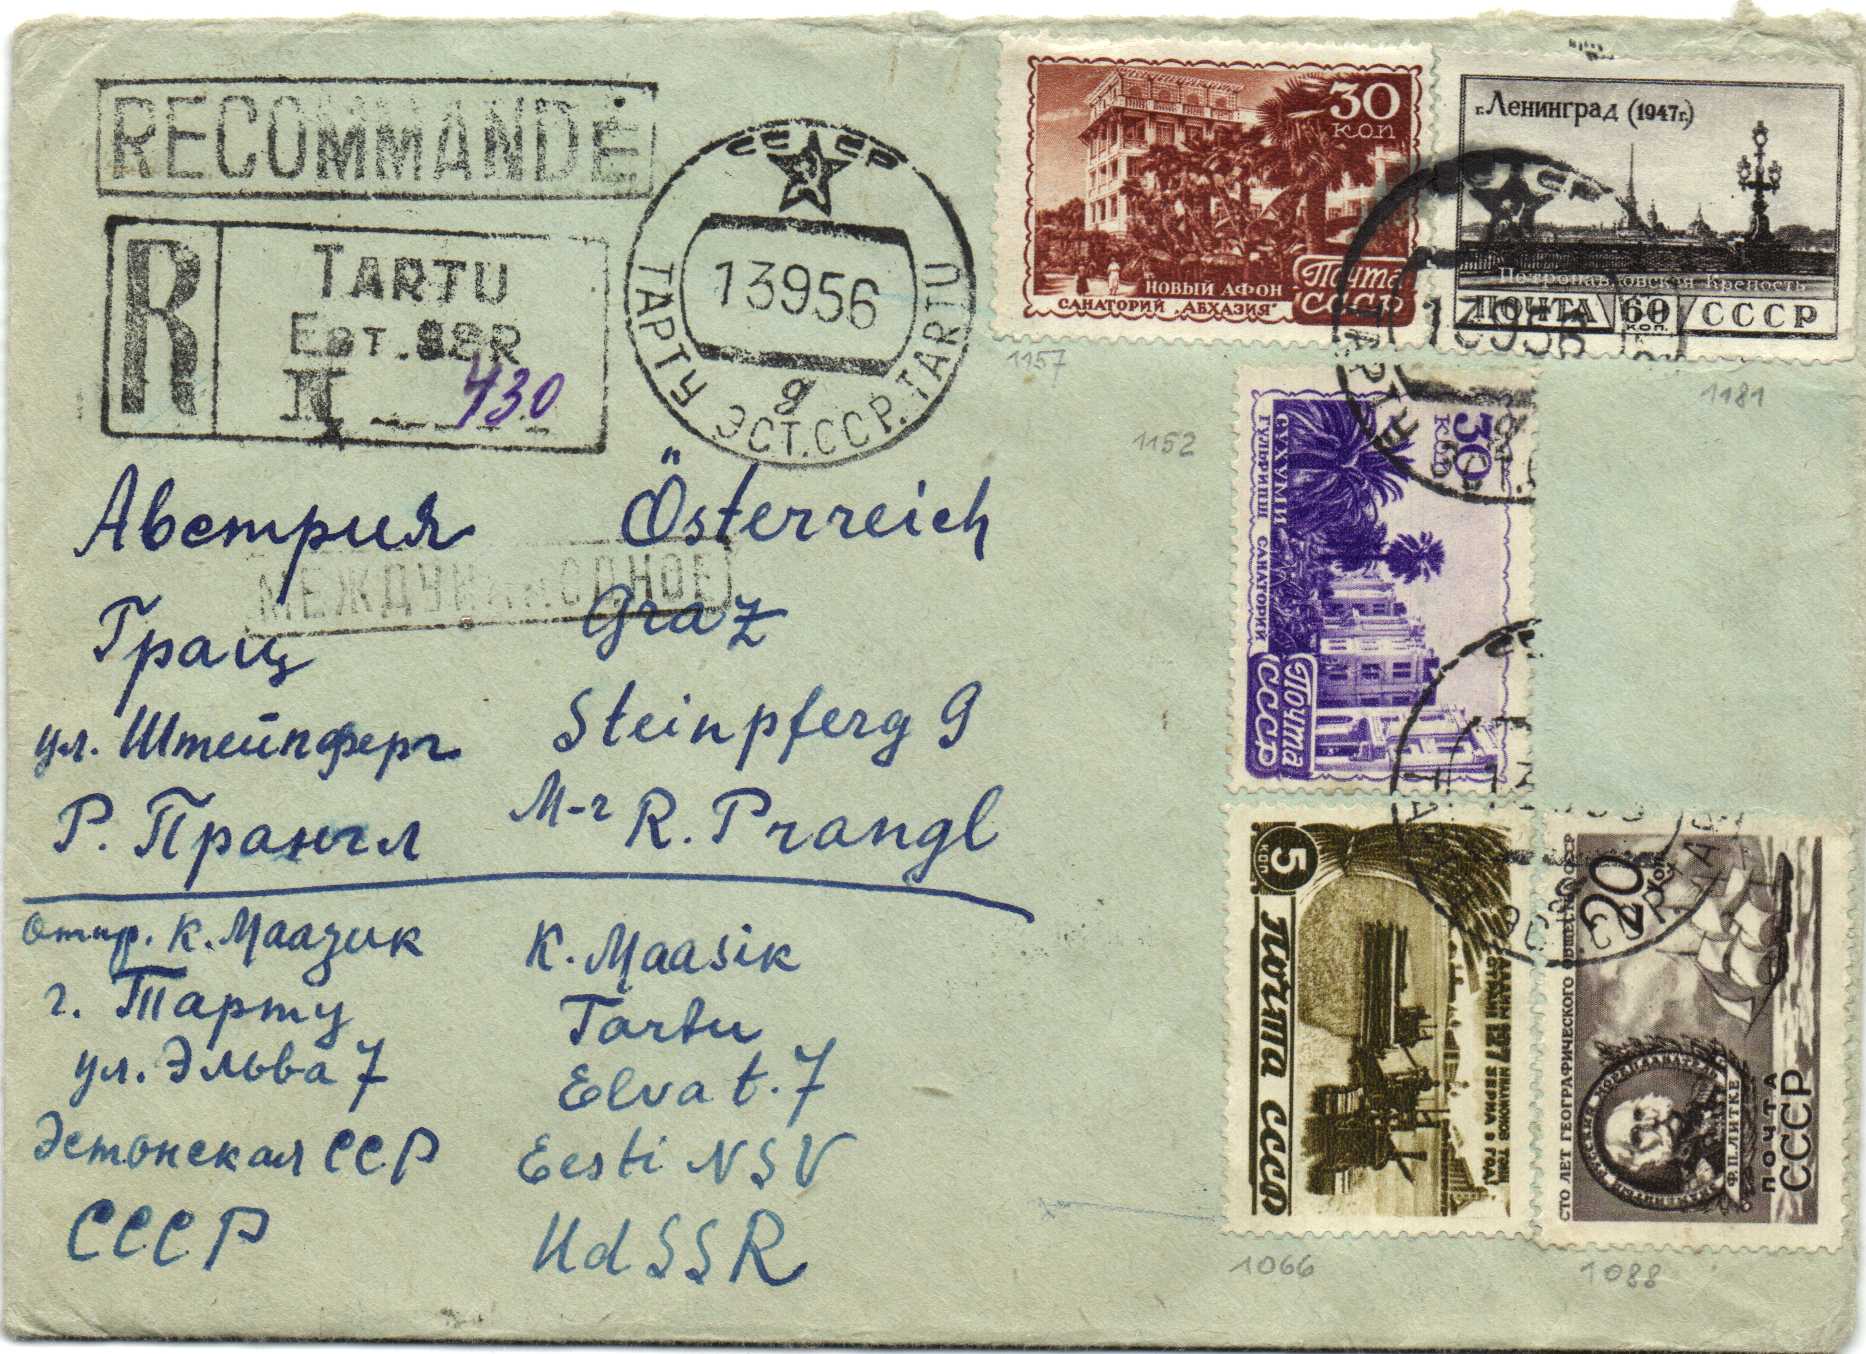 RECOMMANDÉ
R
TARTU
EST. SSR
N 430
СССР
13956
g
ТАРТУ ЭСТ.ССР. TARTU
Австрия
Österreich
МЕЖДУНАРОДНОЕ
Грац
Graz
ул. Штейпферг
Steinpferg 9
Р. Прангл
М-г R. Prangl
Отпр. К. Маазик
K. Maasik
г. Тарту
Tartu
ул. Эльва 7
Elva t. 7
Эстонская ССР
Eesti NSV
СССР
UdSSR
30
КОП
НОВЫЙ АФОН
САНАТОРИЙ „АБХАЗИЯ"
Почта
СССР
1157
г. Ленинград (1947г.)
Петропавловская Крепость
ПОЧТА 60 КОП. СССР
СССР
13956
1181
1152
30
КОП
СУХУМИ
ГУЛЬРИПШ САНАТОРИЙ
Почта
СССР
5
КОП
ПОЧТА СССР
1066
20
КОП
СТО ЛЕТ ГЕОГРАФИЧЕСКОГО ОБЩЕСТВА СССР
ЗНАМЕНИТЫЙ РУССКИЙ МОРЕПЛАВАТЕЛЬ
Ф.П.ЛИТКЕ
ПОЧТА
СССР
1088